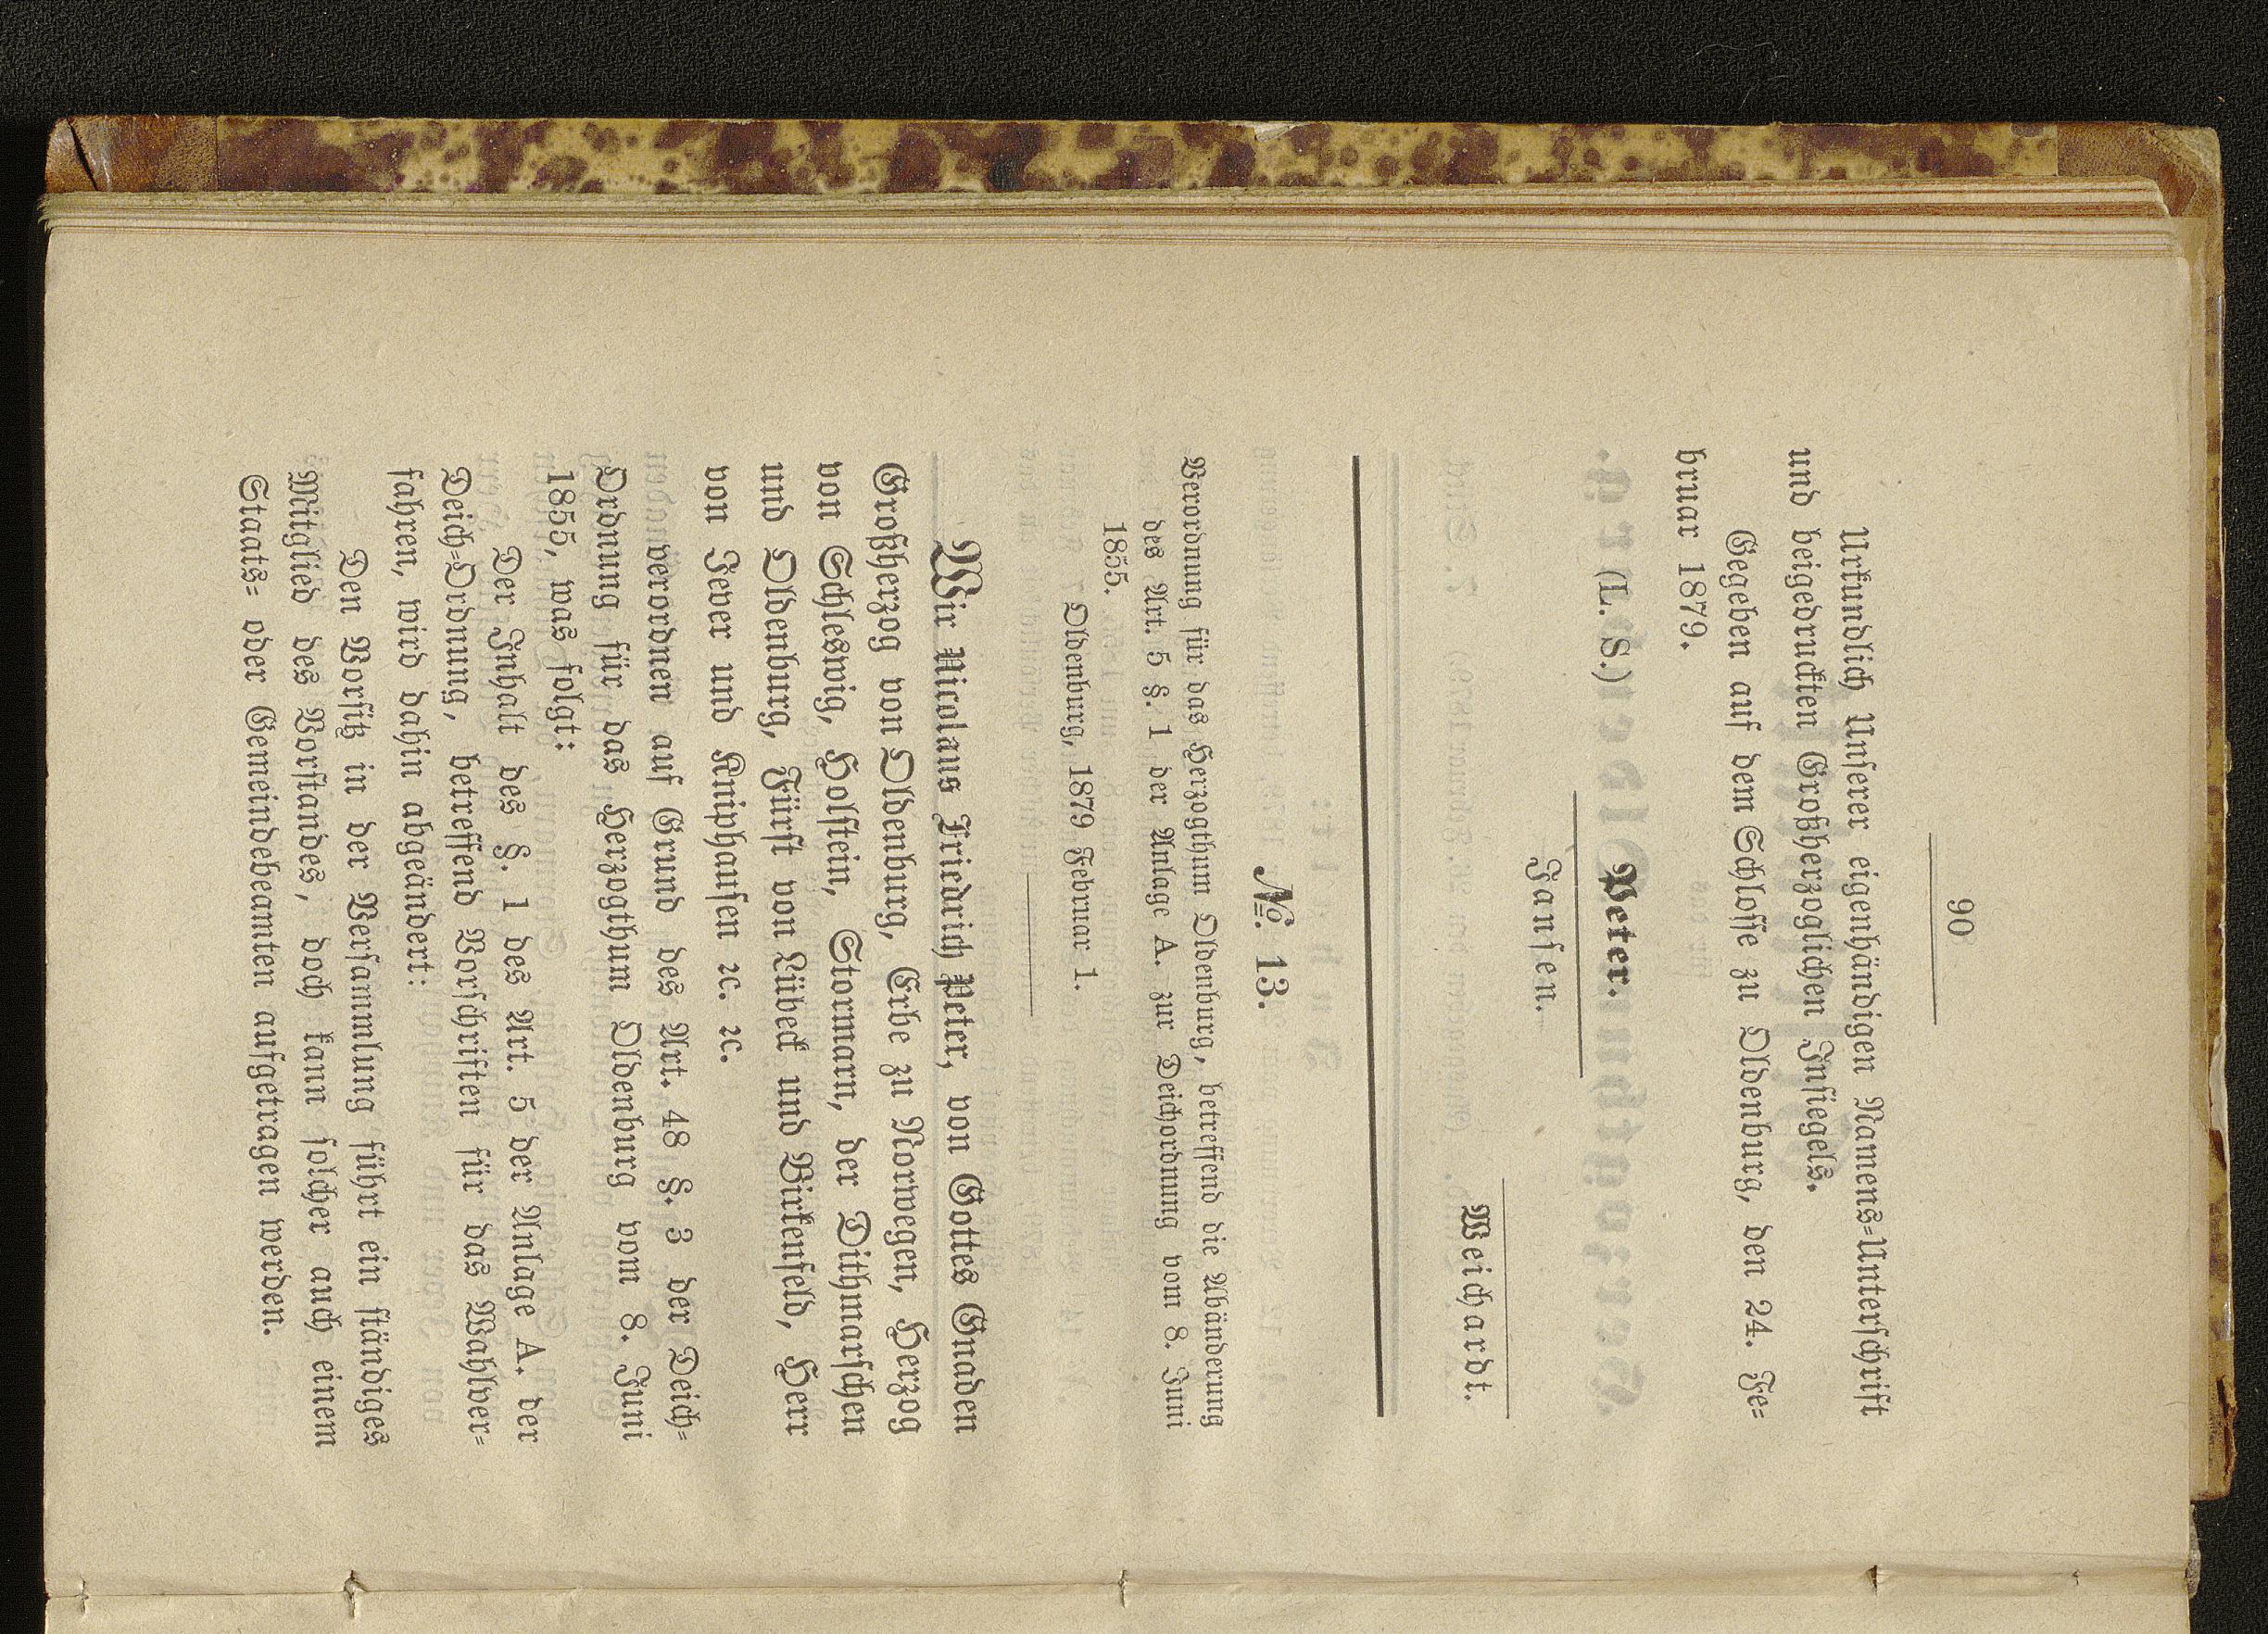 90
Urkundlich Unserer eigenhändigen Namens=Unterschrift
und beigedruckten Großherzoglichen Insiegels.
Gegeben auf dem Schlosse zu Oldenburg, den 24. Fe=
bruar 1879.
(L. S.) Peter.
Jansen.
Weichardt.
№. 13.
Verordnung für das Herzogthum Oldenburg, betreffend die Abänderung
des Art. 5 §. 1 der Anlage A. zur Deichordnung vom 8. Juni
1855.
Oldenburg, 1879 Februar 1.
Wir Nicolaus Friedrich Peter, von Gottes Gnaden
Großherzog von Oldenburg, Erbe zu Norwegen, Herzog
von Schleswig, Holstein, Stormarn, der Dithmarschen
und Oldenburg, Fürst von Lübeck und Birkenfeld, Herr
von Jever und Kniphausen ꝛc. ꝛc.
verordnen auf Grund des Art. 48 §. 3 der Deich=
Ordnung für das Herzogthum Oldenburg vom 8. Juni
1855, was folgt:
Der Inhalt des §. 1 des Art. 5 der Anlage A. der
Deich=Ordnung, betreffend Vorschriften für das Wahlver=
fahren, wird dahin abgeändert:
Den Vorsitz in der Versammlung führt ein ständiges
Mitglied des Vorstandes, doch kann solcher auch einem
Staats= oder Gemeindebeamten aufgetragen werden.